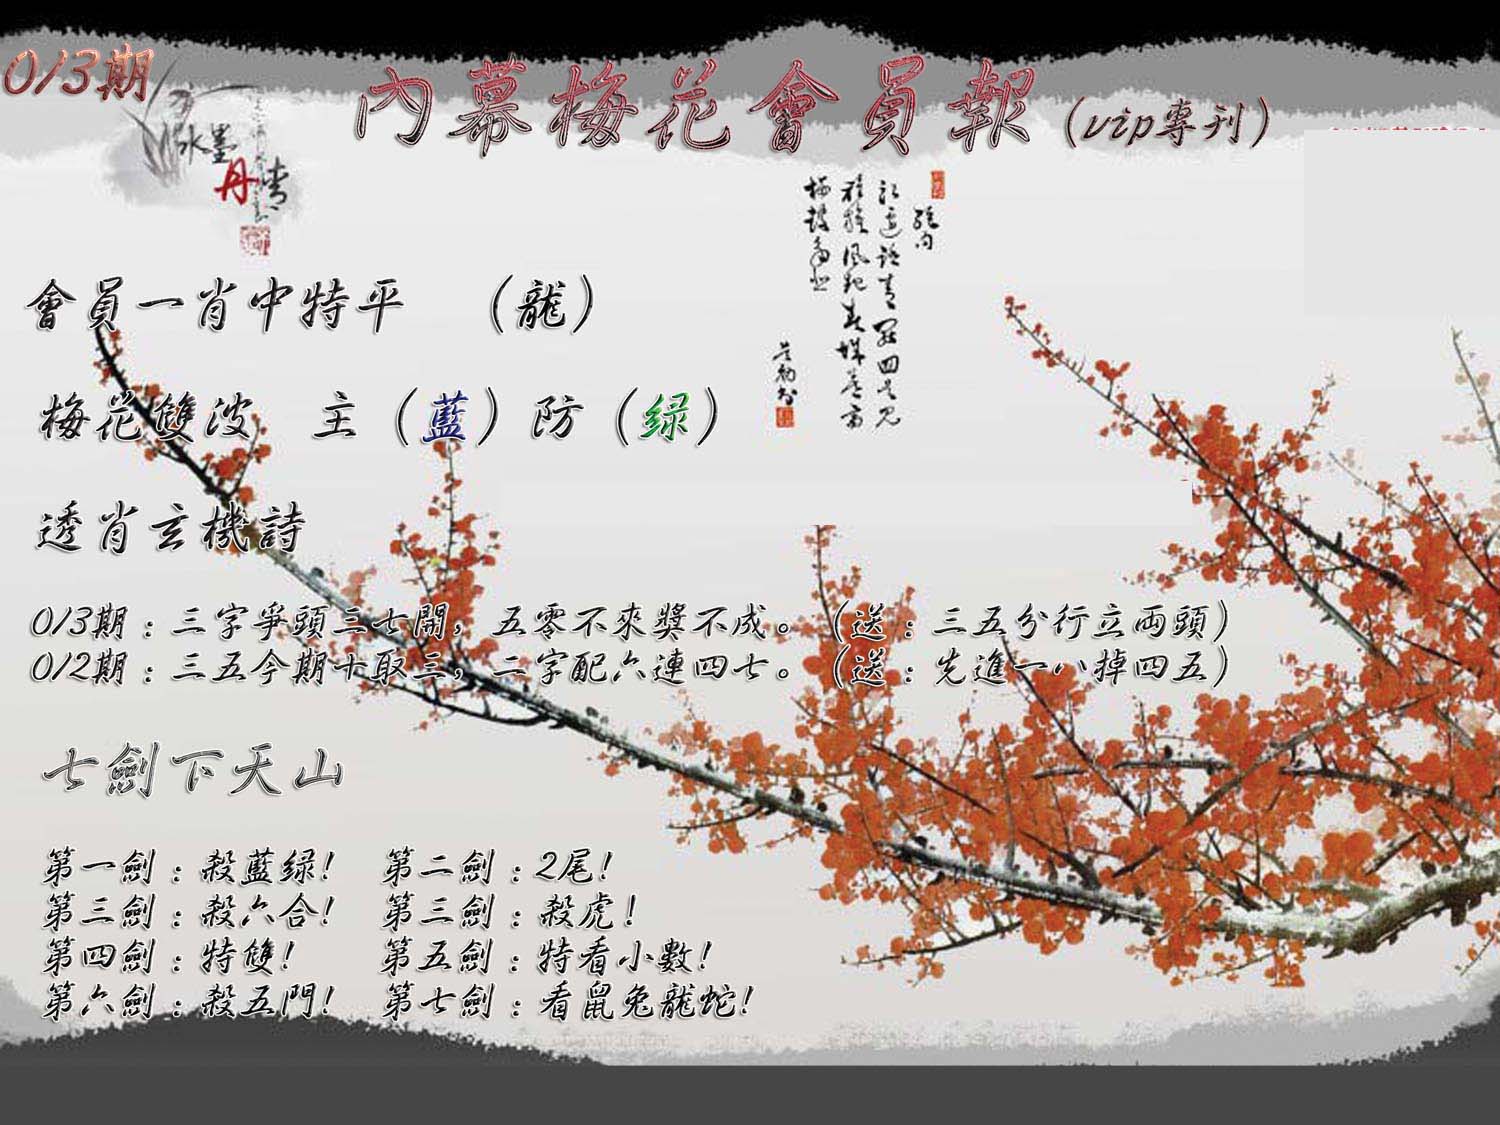 013期
內幕梅花會員報（vip專刊）
水墨
丹青
會員一肖中特平　（龍）
梅花雙波　主（藍）防（绿）
透肖玄機詩
013期：三字爭頭三七開，五零不來獎不成。（送：三五分行立両頭）
012期：三五今期十取三，二字配六連四七。（送：先進一八掉四五）
七劍下天山
第一劍：殺藍绿!　第二劍：2尾!
第三劍：殺六合!　第三劍：殺虎!
第四劍：特雙!　第五劍：特看小數!
第六劍：殺五門!　第七劍：看鼠兔龍蛇!